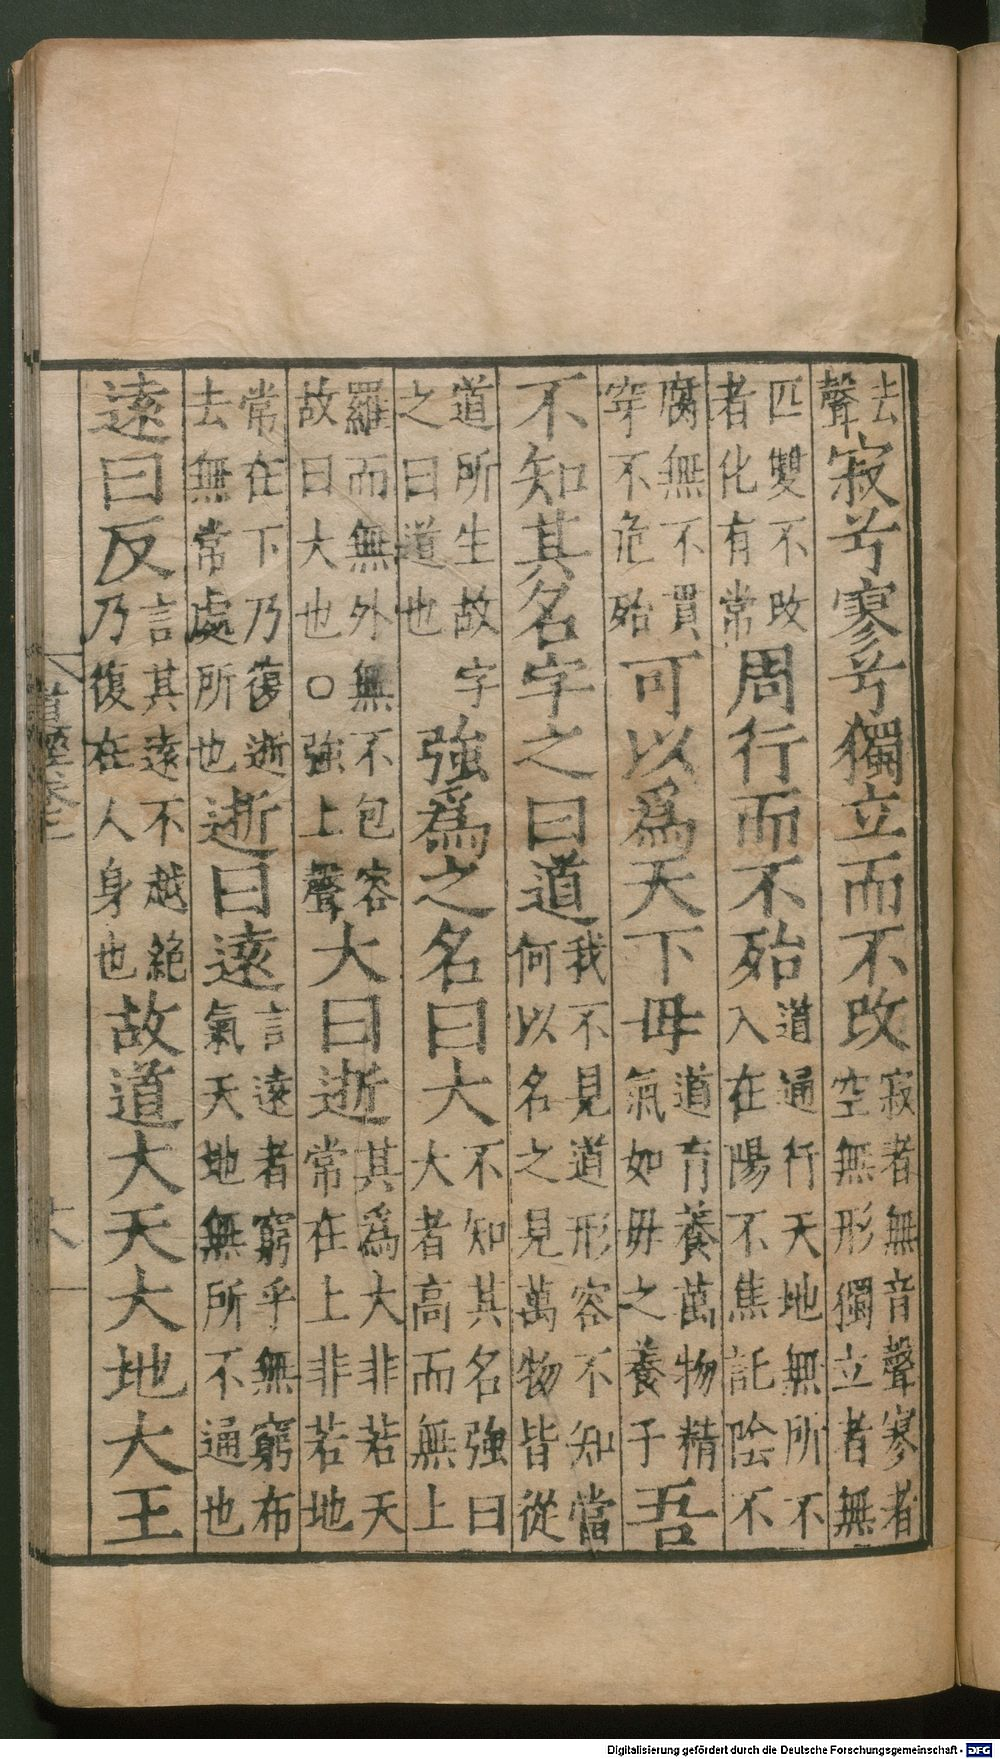 去聲寂兮寥兮獨立而不改寂者無音聲寥者空無形獨立者無
匹雙不改者化有常周行而不殆道通行天地無所不入在陽不焦託陰不
腐無不貫穿不危殆可以爲天下母道育養萬物精氣如母之養子吾
不知其名字之曰道我不見道形容不知當何以名之見萬物皆從
道所生故字之曰道也強爲之名曰大不知其名強曰大者高而無上
羅而無外無不包容故曰大也○強上聲大曰逝其爲大非若天常在上非若地
常在下乃復逝去無常處所也逝曰遠言遠者窮乎無窮布氣天地無所不通也
遠曰反言其遠不越絕乃復在人身也故道大天大地大王
Digitalisierung gefördert durch die Deutsche Forschungsgemeinschaft - DFG